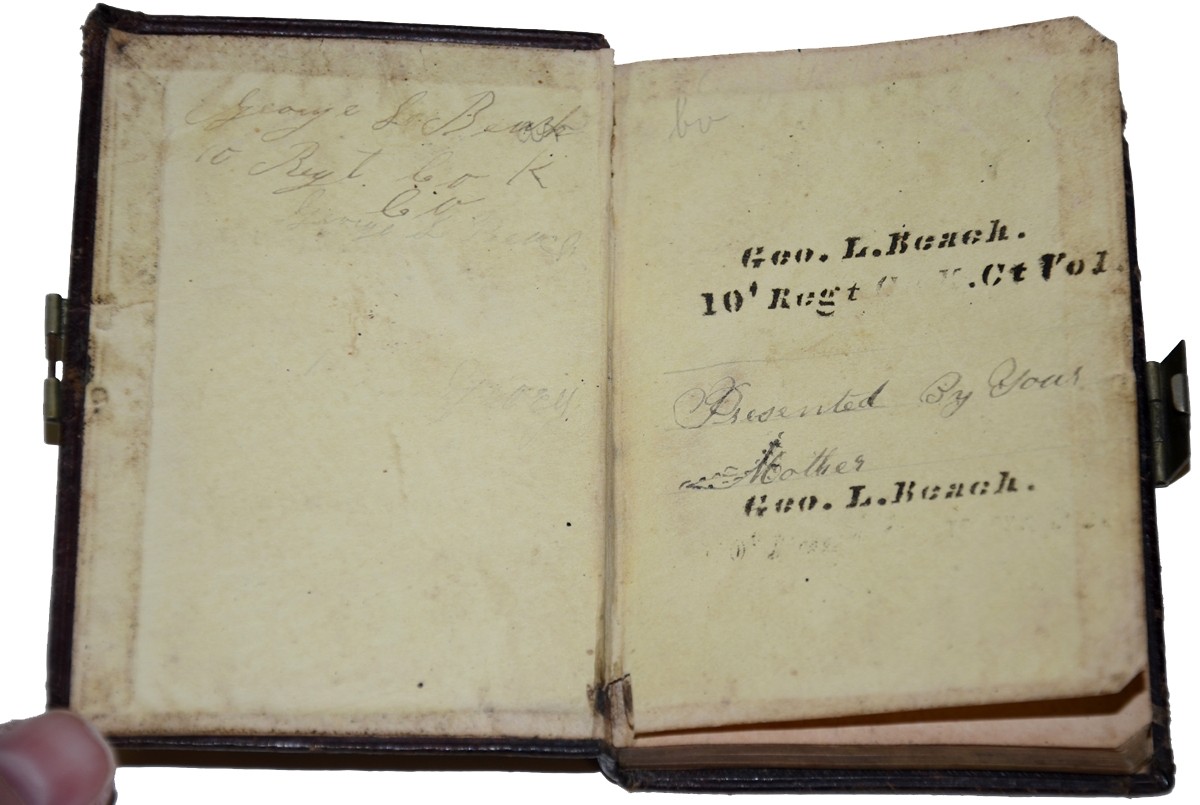 George L. Beach
10 Regt. Co K
Co
George L Beach
Co
Geo. L. Beach.
10' Regt Co K. Ct Vol.
Presented By Your
Mother
Geo. L. Beach.